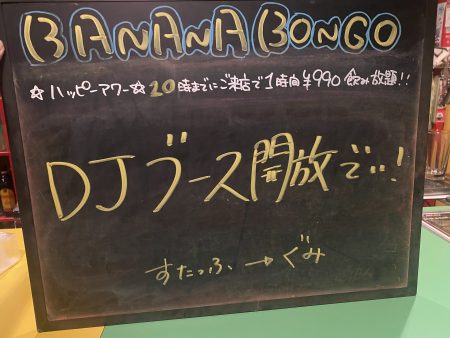 BANANA BONGO
☆ハッピーアワー☆ 20時までにご来店で1時間¥990飲み放題!!
DJブース開放で..!
すたっふ→ぐみ